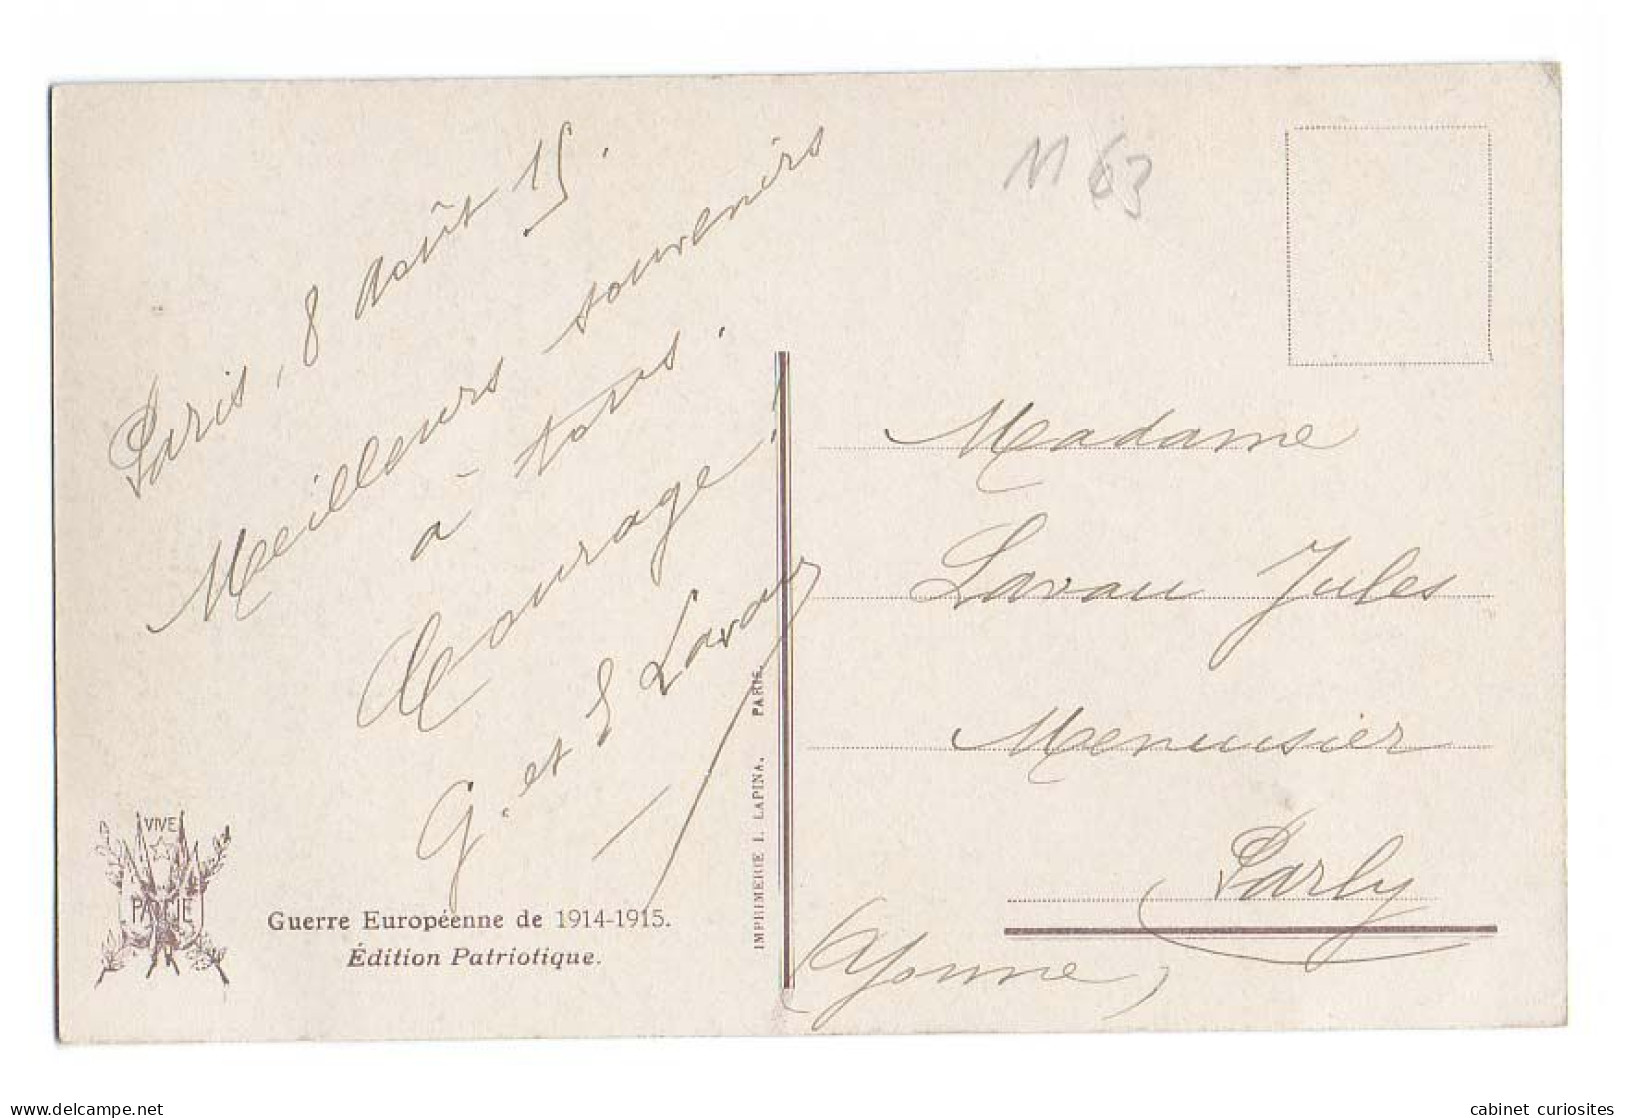 Paris, 8 Août 15.
Meilleurs souvenirs
à tous.
Courage!
G. et E Lavau
VIVE
PATRIE
Guerre Européenne de 1914-1915.
Édition Patriotique.
IMPRIMERIE I. LAPINA. PARIS.
M 63
Madame
Lavau Jules
Menuisier
Parly
(Yonne)
delcampe.net
cabinet_curiosites